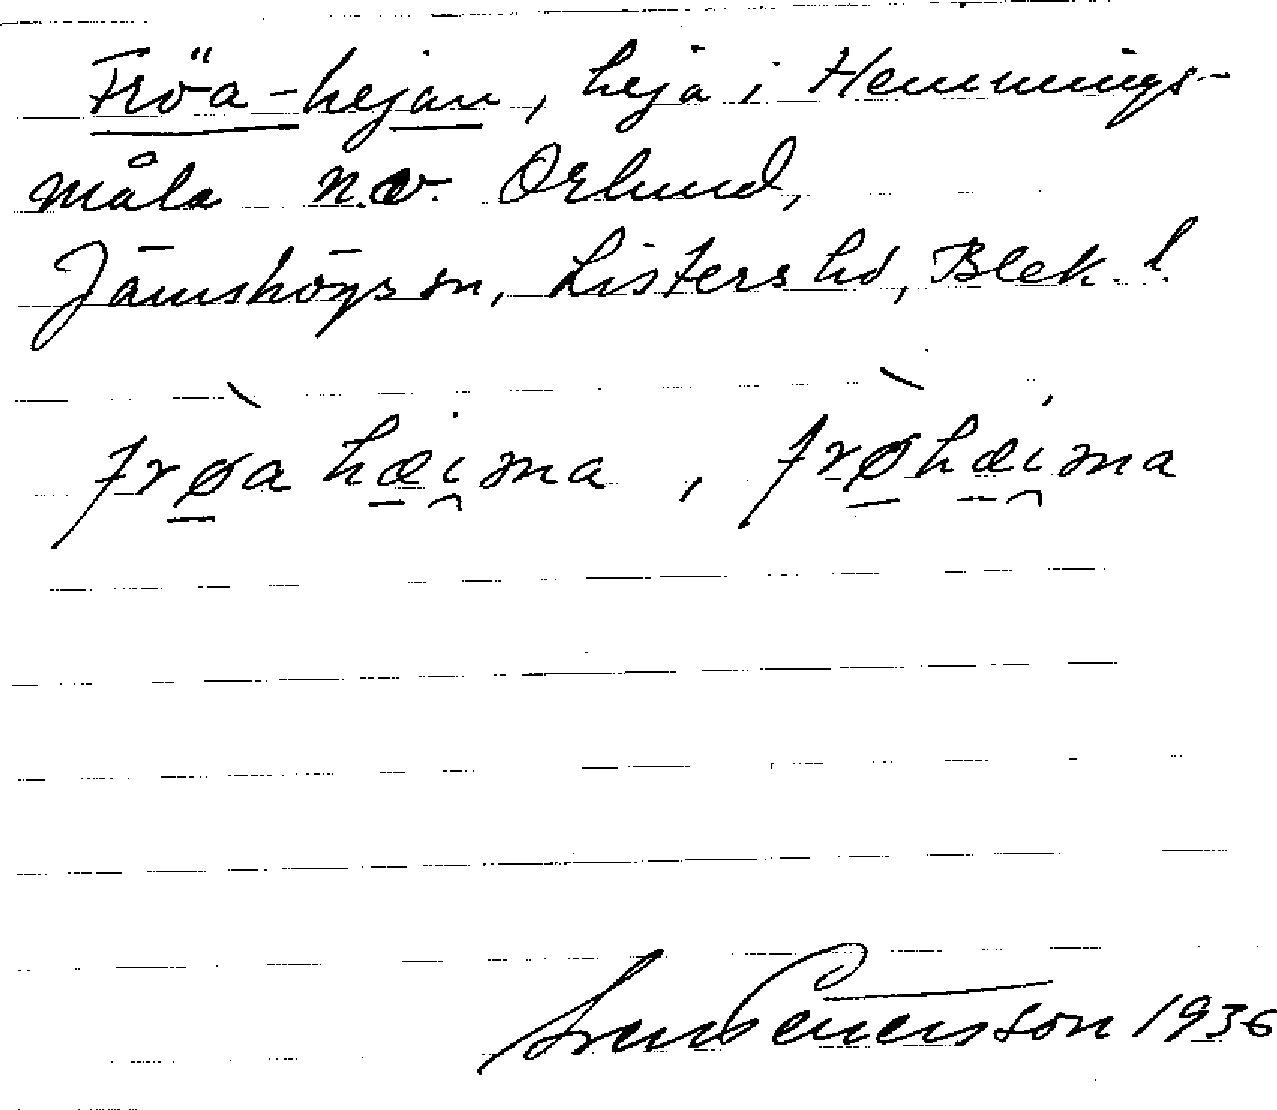 Fröa-hejan, heja i Hemmings-
måla n.v. Orlund,
Jämshögs sn, Listers hd, Blek. l.
frøahæi̯ma, frøhæi̯ma
Sven Peterson 1936